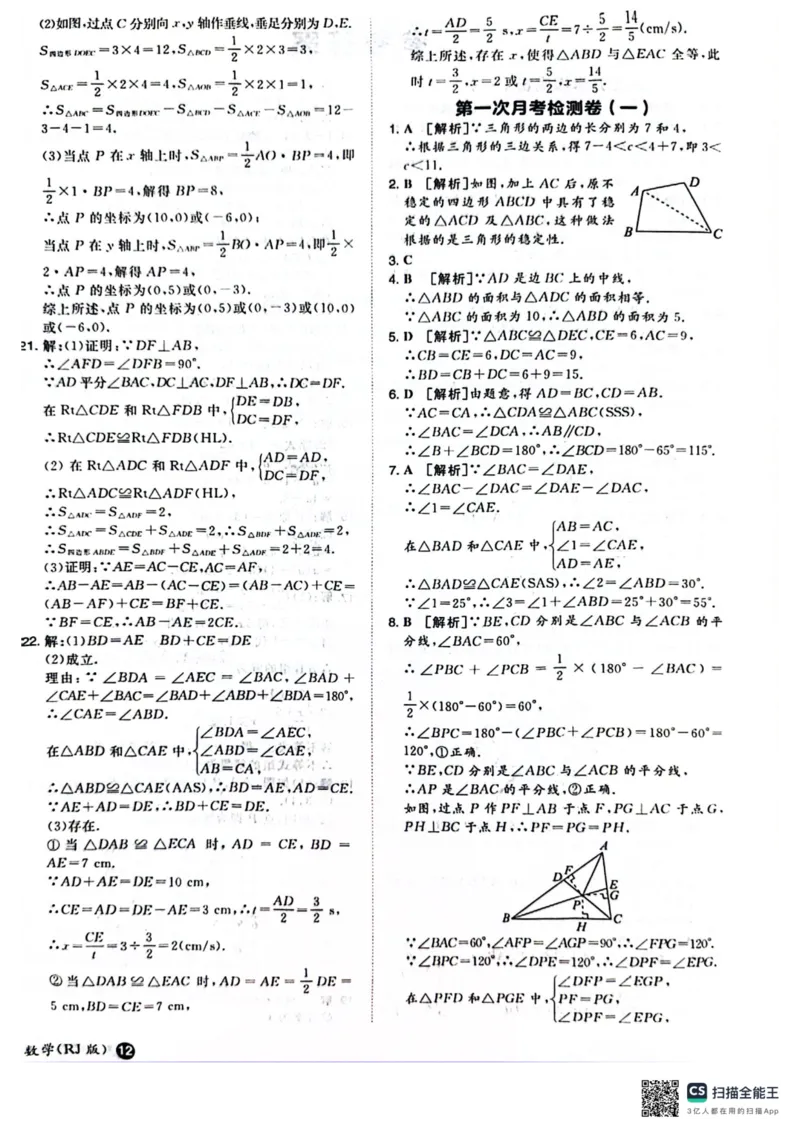 (2)如图,过点 C 分别向 x,y 轴作垂线,垂足分别为 D,E.
S四边形DOEC=3×4=12,S△BCD=1/2×2×3=3,
S△ACE=1/2×2×4=4,S△AOB=1/2×2×1=1,
∴S△ABC=S四边形DOEC-S△BCD-S△ACE-S△AOB=12-
3-4-1=4.
(3)当点 P 在 x 轴上时,S△ABP=1/2AO·BP=4,即
1/2×1·BP=4,解得 BP=8,
∴点 P 的坐标为(10,0)或(-6,0);
当点 P 在 y 轴上时,S△ABP=1/2BO·AP=4,即1/2×
2·AP=4,解得 AP=4,
∴点 P 的坐标为(0,5)或(0,-3).
综上所述,点 P 的坐标为(0,5)或(0,-3)或(10,0)
或(-6,0).
21.解:(1)证明:∵DF⊥AB,
∴∠AFD=∠DFB=90°.
∵AD平分∠BAC,DC⊥AC,DF⊥AB,∴DC=DF.
在 Rt△CDE 和 Rt△FDB 中,{DE=DB,
DC=DF,
∴Rt△CDE≌Rt△FDB(HL).
(2) 在 Rt△ADC 和 Rt△ADF 中,{AD=AD,
DC=DF,
∴Rt△ADC≌Rt△ADF(HL),
∴S△ADC=S△ADF=2,
∴S△ADC=S△CDE+S△ADE=2,∴S△BDF+S△ADE=2,
∴S四边形ABDE=S△BDF+S△ADE+S△ADF=2+2=4.
(3)证明:∵AE=AC-CE,AC=AF,
∴AB-AE=AB-(AC-CE)=(AB-AC)+CE=
(AB-AF)+CE=BF+CE.
∵BF=CE,∴AB-AE=2CE.
22.解:(1)BD=AE BD+CE=DE
(2)成立.
理由:∵∠BDA=∠AEC=∠BAC,∠BAD+
∠CAE+∠BAC=∠BAD+∠ABD+∠BDA=180°,
∴∠CAE=∠ABD.
在△ABD 和△CAE 中,{∠BDA=∠AEC,
∠ABD=∠CAE,
AB=CA,
∴△ABD≌△CAE(AAS),∴BD=AE,AD=CE.
∵AE+AD=DE,∴BD+CE=DE.
(3)存在.
①当△DAB≌△ECA 时,AD=CE,BD=
AE=7 cm.
∵AD+AE=DE=10 cm,
∴CE=AD=DE-AE=3 cm,∴t=AD/2=3/2 s,
∴x=CE/t=3÷3/2=2(cm/s).
②当△DAB≌△EAC 时,AD=AE=1/2DE=
5 cm,BD=CE=7 cm,
数学(RJ 版) 12
∴t=AD/2=5/2 s,x=CE/t=7÷5/2=14/5(cm/s).
综上所述,存在 x,使得△ABD 与△EAC 全等,此
时 t=3/2,x=2 或 t=5/2,x=14/5.
第一次月考检测卷(一)
1. A [解析]∵三角形的两边的长分别为 7 和 4,
∴根据三角形的三边关系,得 7-4<c<4+7,即 3<
c<11.
2. B [解析]如图,加上 AC 后,原不
稳定的四边形 ABCD 中具有了稳
定的△ACD 及△ABC,这种做法
根据的是三角形的稳定性.
A
D
B
C
3. C
4. B [解析]∵AD 是边 BC 上的中线,
∴△ABD 的面积与△ADC 的面积相等.
∵△ABC 的面积为 10,∴△ABD 的面积为 5.
5. D [解析]∵△ABC≌△DEC,CE=6,AC=9,
∴CB=CE=6,DC=AC=9,
∴BD=CB+DC=6+9=15.
6. D [解析]由题意,得 AD=BC,CD=AB.
∵AC=CA,∴△CDA≌△ABC(SSS),
∴∠BAC=∠DCA,∴AB∥CD,
∴∠B+∠BCD=180°,∴∠BCD=180°-65°=115°.
7. A [解析]∵∠BAC=∠DAE,
∴∠BAC-∠DAC=∠DAE-∠DAC,
∴∠1=∠CAE.
在△BAD 和△CAE 中,{AB=AC,
∠1=∠CAE,
AD=AE,
∴△BAD≌△CAE(SAS),∴∠2=∠ABD=30°.
∵∠1=25°,∴∠3=∠1+∠ABD=25°+30°=55°.
8. B [解析]∵BE,CD 分别是∠ABC 与∠ACB 的平
分线,∠BAC=60°,
∴∠PBC+∠PCB=1/2×(180°-∠BAC)=
1/2×(180°-60°)=60°,
∴∠BPC=180°-(∠PBC+∠PCB)=180°-60°=
120°,①正确.
∵BE,CD 分别是∠ABC 与∠ACB 的平分线,
∴AP 是∠BAC的平分线,②正确.
如图,过点 P 作 PF⊥AB 于点 F,PG⊥AC 于点 G,
PH⊥BC 于点 H,∴PF=PG=PH.
A
D
F
E
G
P
B
H
C
∵∠BAC=60°,∠AFP=∠AGP=90°,∴∠FPG=120°.
∵∠BPC=120°,∴∠DPE=120°,∴∠DPF=∠EPG.
在△PFD 和△PGE 中,{∠DFP=∠EGP,
PF=PG,
∠DPF=∠EPG,
CS 扫描全能王
3亿人都在用的扫描App